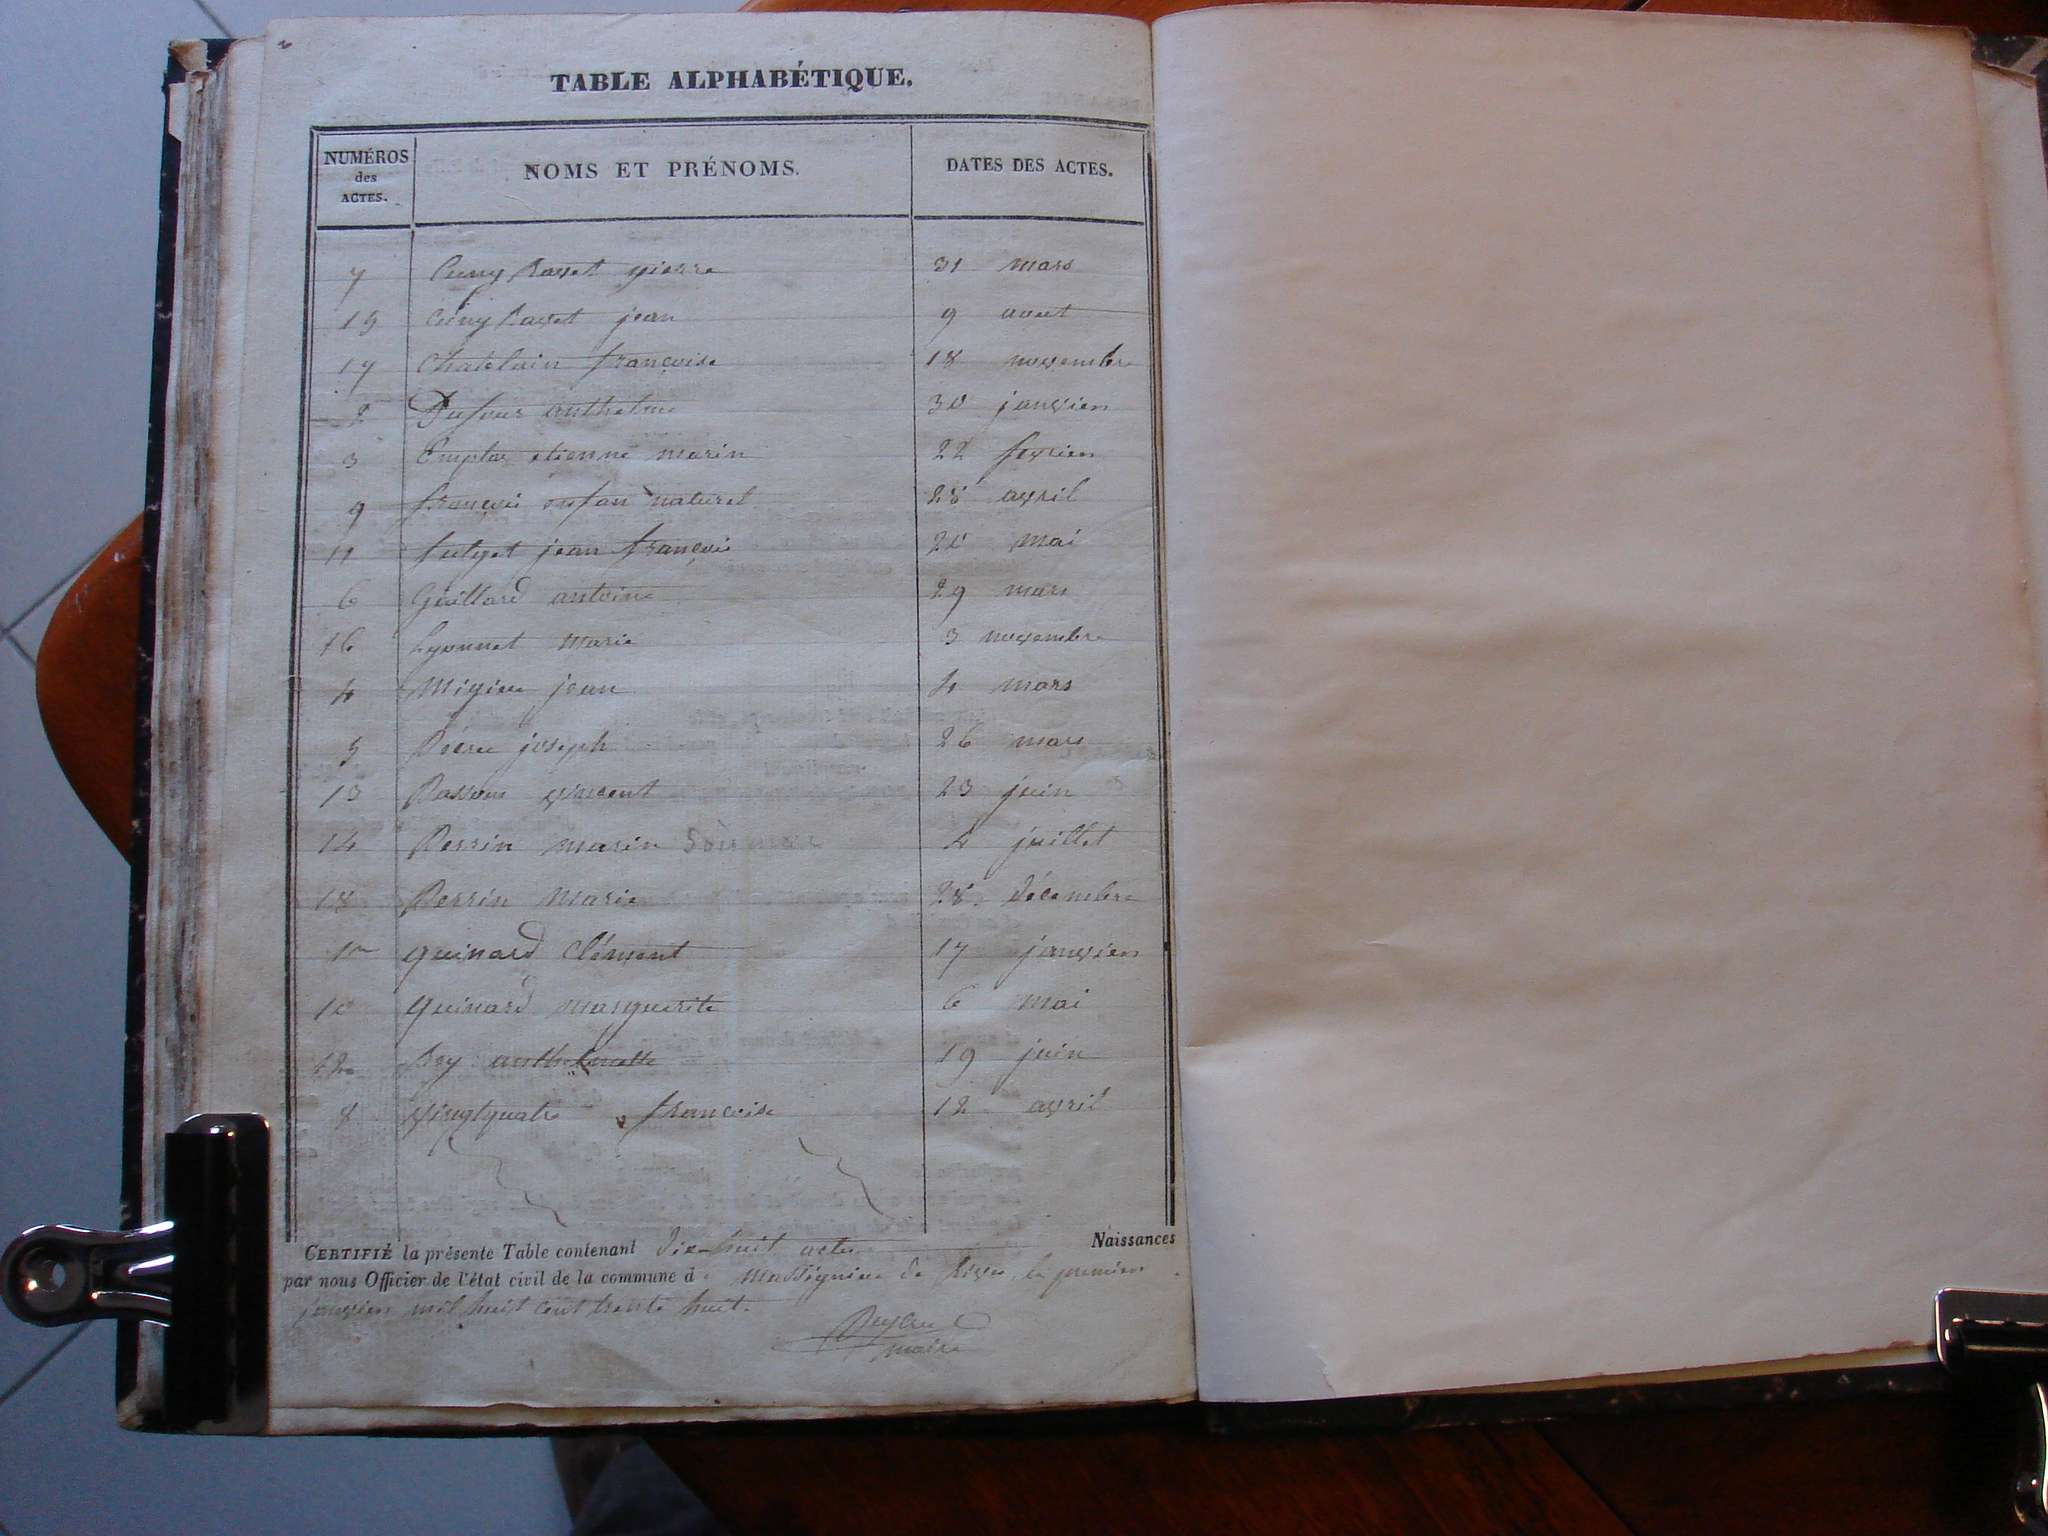 TABLE ALPHABÉTIQUE.
NUMÉROS des ACTES. NOMS ET PRÉNOMS. DATES DES ACTES.
7 Cuny Ravet pierre 31 mars
15 Cuny Ravet jean 9 aout
17 Chatelain françoise 18 novembre
2 Dufour anthelme 30 janvier
3 etienne marin 22 fevrier
9 françois enfan naturel 28 avril
11 jean françois 20 mai
6 Guillard antoine 29 mars
16 Lyonnet marie 3 novembre
4 Migieu jean 4 mars
5 joseph 26 mars
13 vincent 23 juin
14 Perrin marin 4 juillet
18 Perrin marie 28 décembre
1er quinard Clément 17 janvier
10 quinard marguerite 6 mai
12 Rey anthelmette 19 juin
8 vingtquatre françoise 12 avril
CERTIFIÉ la présente Table contenant dix-huit actes Naissances
par nous Officier de l'état civil de la commune de massignieu de Rives, le premier
janvier mil huit cent trente huit.
maire